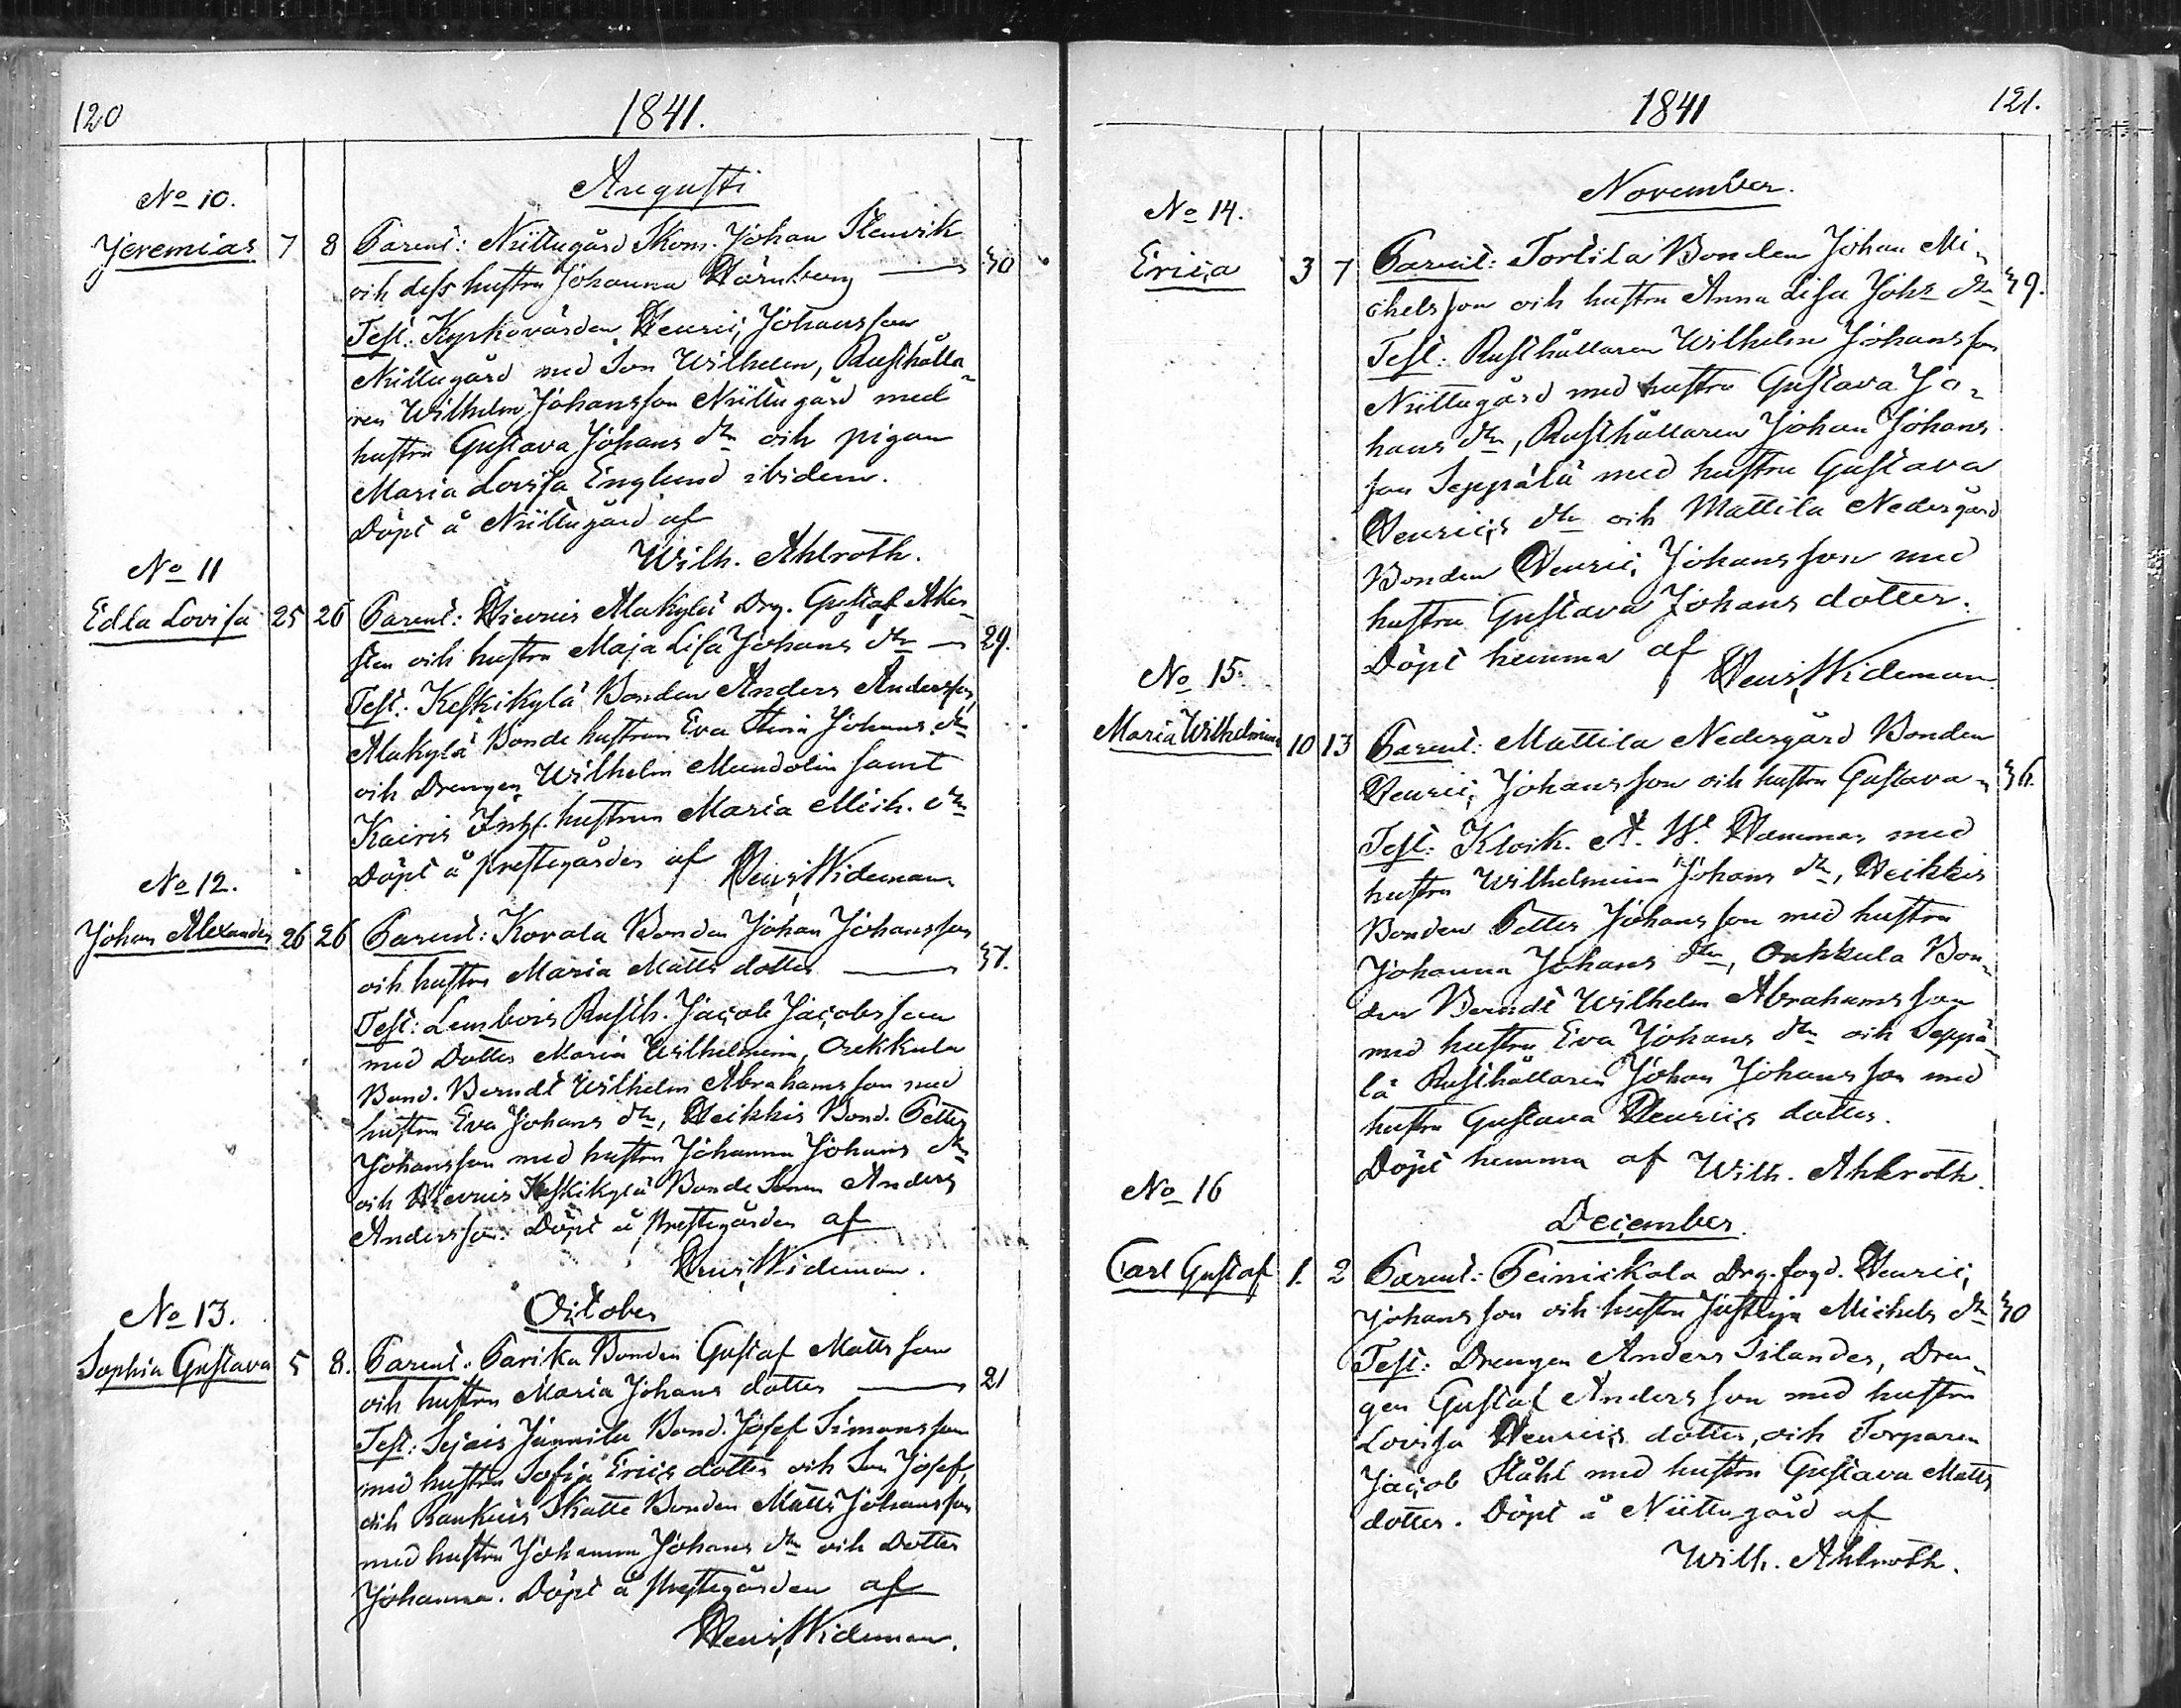 120
1841.
Augusti
No 10.
Jeremias 7 8 Parent: Niittugård Skom. Johan Stenvik
och dess hustru Johanna Törnberg — 30
Test. Kyrkovärden Henric Johansson
Niittugård med Son Wilhelm, Rusthålla-
ren Wilhelm Johansson Niittugård med
hustru Gustava Johans dtr och pigan
Maria Lovisa Englund ibidem.
Döpt å Niittugård af
Wilh. Ahlroth.
No 11
Edla Lovisa 25 26 Parent: Hievuis Alakylä Drg. Gustaf Aker-
sten och hustru Maja Lisa Johans dtr — 29.
Test. Keskikylä Bonden Anders Andersson,
Alakylä Bonde hustrun Eva Stina Johans dtr
och Drengen Wilhelm Mundolin samt
Kairis Inh. hustrun Maria Mich. dtr
Döpt å prestegården af Henr. Wideman.
No 12.
Johan Alexander 26 26 Parent: Kovala Bonden Johan Johansson
och hustru Maria Matts dotter — 37.
Test: Lembois Rusth. Jacob Jacobsson
med Dotter Maria Wilhelmina, Orkkula
Bond. Berndt Wilhelm Abrahamsson med
hustru Eva Johans dtr, Heikkis Bond. Petter
Johansson med hustru Johanna Johans dtr
och Hievuis Keskikylä Bonde Sonen Anders
Andersson. Döpt å prestegården af
Henr. Wideman.
October
No 13.
Sophia Gustava 5 8. Parent: Parika Bonden Gustaf Mattsson
och hustru Maria Johans dotter — 21
Test: Sejais Jännilä Bond. Josef Simonsson
med hustru Sofia Erics dotter och Son Josef,
och Rankuis Skatte Bonden Matts Johansson
med hustru Johanna Johans dtr och Dotter
Johanna. Döpt å prestegården af
Henr. Wideman.
1841
121.
November.
No 14.
Erica 3 7 Parent: Tortila Bonden Johan Mi-
chelsson och hustru Anna Lisa Johs dtr 39.
Test: Rusthållaren Wilhelm Johansson
Niittugård med hustru Gustava Jo-
hans dtr, Rusthållaren Johan Johans
son Seppälä med hustru Gustava
Henrics dtr och Mattila Nedergård
Bonden Henric Johansson med
hustru Gustava Johans dotter.
Döpt hemma af Henr. Wideman.
No 15.
Maria Wilhelmina 10 13 Parent: Mattila Nedergård Bonden
Henric Johansson och hustru Gustava 36.
Test: Klock. A. W. Hammar med
hustru Wilhelmina Johans dtr, Heikkis
Bonden Petter Johansson med hustru
Johanna Johans dtr, Orkkula Bon-
den Berndt Wilhelm Abrahamsson
med hustru Eva Johans dtr och Seppä-
lä Rusthållaren Johan Johansson med
hustru Gustava Henrics dotter.
Döpt hemma af Wilh. Ahlroth.
December.
No 16
Carl Gustaf 1. 2 Parent: Peinickala Drg. fogd. Henric
Johansson och hustru Justina Michels dtr 30
Test: Drengen Anders Silander, Dren-
gen Gustaf Andersson med hustru
Lovisa Henrics dotter, och Torparen
Jacob Ståhl med hustru Gustava Matts
dotter. Döpt å Niittugård af
Wilh. Ahlroth.